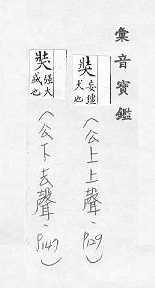 彙音寶鑑
奘 妄壇犬也
(公上上聲、P129)
奘 強大盛也
(公下去聲、P147)